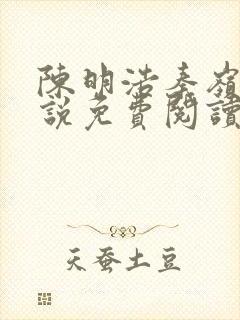 陳明浩秦嶺
說免費閱讀
天蚕土豆